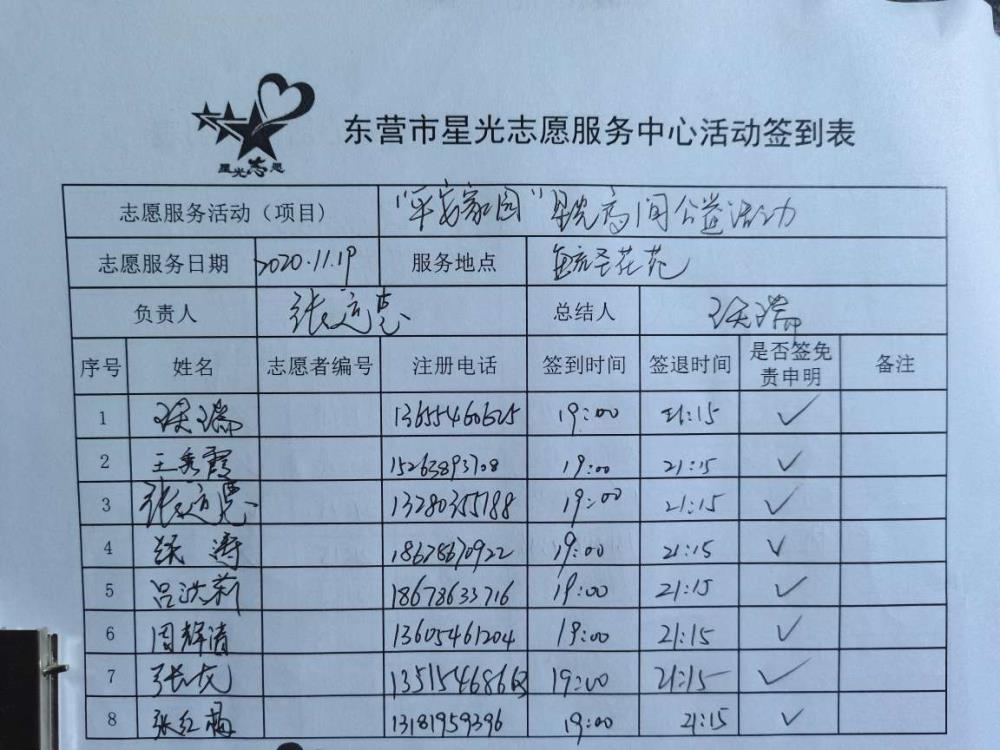 星光志愿
东营市星光志愿服务中心活动签到表
志愿服务活动（项目） “平安家园”星光夜间公益活动
志愿服务日期 2020.11.19 服务地点 毓秀花苑
负责人 张道惠 总结人 瑞
序号 姓名 志愿者编号 注册电话 签到时间 签退时间 是否签免责申明 备注
1 瑞 13655460625 19:00 21:15 ✓
2 王秀霞 15263893708 19:00 21:15 ✓
3 张道惠 13280355188 19:00 21:15 ✓
4 涛 18678670922 19:00 21:15 ✓
5 吕洪莉 18678633716 19:00 21:15 ✓
6 周辉清 13605461204 19:00 21:15 ✓
7 张龙 19:00 21:15 ✓
8 张红梅 13181959396 19:00 21:15 ✓